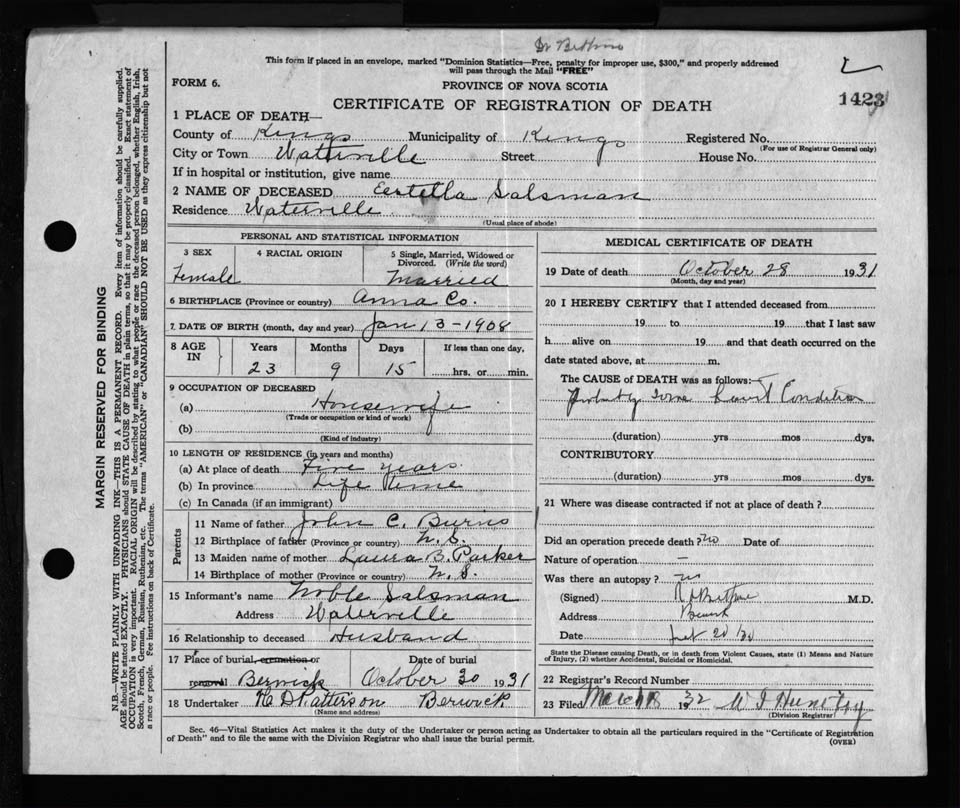 Dr Bethune
This form if placed in an envelope, marked "Dominion Statistics—Free, penalty for improper use, $300," and properly addressed
will pass through the Mail "FREE"
FORM 6.
PROVINCE OF NOVA SCOTIA
CERTIFICATE OF REGISTRATION OF DEATH
1423
1 PLACE OF DEATH—
County of Kings Municipality of Kings Registered No.
(For use of Registrar General only)
City or Town Waterville Street House No.
If in hospital or institution, give name
2 NAME OF DECEASED Estella Salsman
Residence Waterville
(Usual place of abode)
PERSONAL AND STATISTICAL INFORMATION
3 SEX 4 RACIAL ORIGIN 5 Single, Married, Widowed or
Divorced. (Write the word)
Female Married
6 BIRTHPLACE (Province or country) Anna Co.
7. DATE OF BIRTH (month, day and year) Jan 13-1908
8 AGE IN Years Months Days If less than one day,
23 9 15 hrs. or min.
9 OCCUPATION OF DECEASED
(a) Housewife
(Trade or occupation or kind of work)
(b)
(Kind of industry)
10 LENGTH OF RESIDENCE (in years and months)
(a) At place of death Five years
(b) In province Life time
(c) In Canada (if an immigrant)
Parents
11 Name of father John C. Burns
12 Birthplace of father (Province or country) N.S.
13 Maiden name of mother Laura B. Parker
14 Birthplace of mother (Province or country) N.S.
15 Informant's name Noble Salsman
Address Waterville
16 Relationship to deceased Husband
17 Place of burial, cremation or Date of burial
removal Berwick October 30 1931
18 Undertaker H D Patterson Berwick
(Name and address)
MEDICAL CERTIFICATE OF DEATH
19 Date of death October 28 1931
(Month, day and year)
20 I HEREBY CERTIFY that I attended deceased from
19 to 19 that I last saw
h alive on 19 and that death occurred on the
date stated above, at m.
The CAUSE of DEATH was as follows:—
Probably some heart Condition
(duration) yrs mos dys.
CONTRIBUTORY
(duration) yrs mos dys.
21 Where was disease contracted if not at place of death?
Did an operation precede death? no Date of
Nature of operation —
Was there an autopsy? no
(Signed) Bethune M.D.
Address Berwick
Date
State the Disease causing Death, or in death from Violent Causes, state (1) Means and Nature
of Injury, (2) whether Accidental, Suicidal or Homicidal.
22 Registrar's Record Number
23 Filed March 1932
(Division Registrar)
Sec. 46—Vital Statistics Act makes it the duty of the Undertaker or person acting as Undertaker to obtain all the particulars required in the "Certificate of Registration
of Death" and to file the same with the Division Registrar who shall issue the burial permit.
(OVER)
MARGIN RESERVED FOR BINDING
N.B.—WRITE PLAINLY WITH UNFADING INK—THIS IS A PERMANENT RECORD. Every item of information should be carefully supplied.
AGE should be stated EXACTLY. PHYSICIANS should STATE CAUSE OF DEATH in plain terms, so that it may be properly classified. Exact statement of
OCCUPATION is very important. RACIAL ORIGIN will be described by stating to what people or race the deceased person belonged, whether English, Irish,
Scotch, French, German, Russian, Ruthenian, etc. The terms "AMERICAN" or "CANADIAN" SHOULD NOT BE USED as they express citizenship but not
a race or people. Fee instructions on back of Certificate.